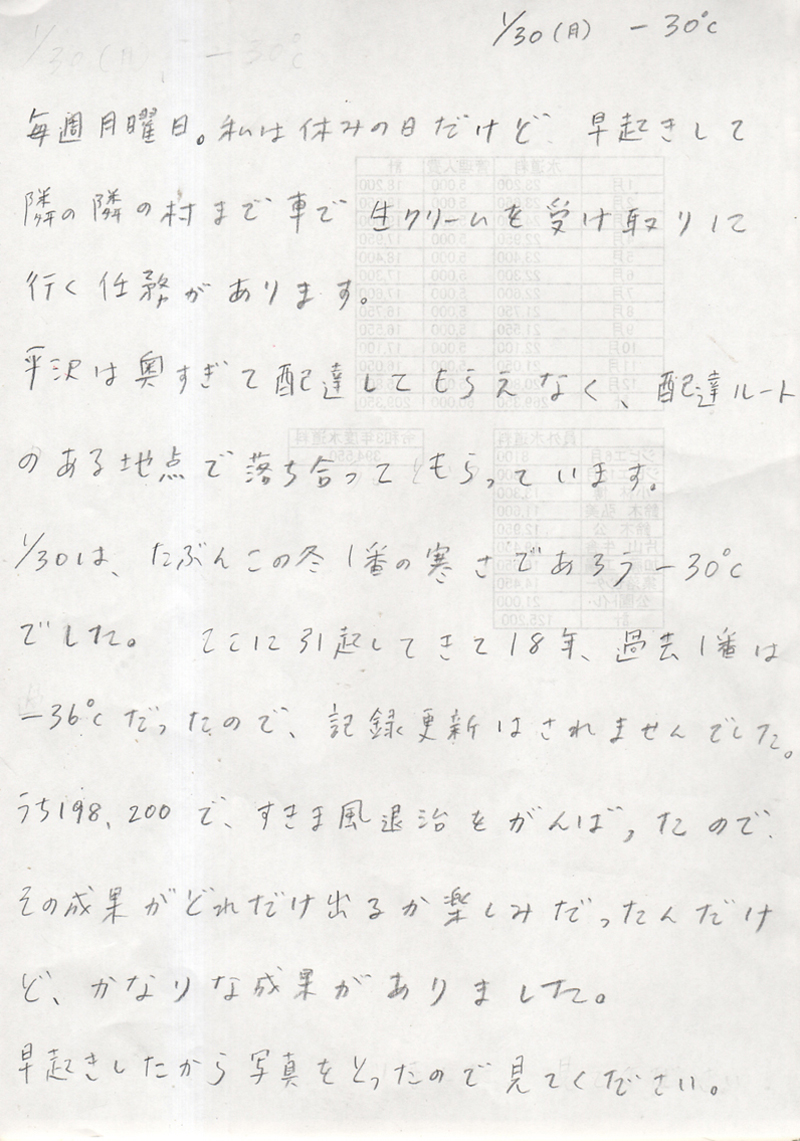 1/30(月) -30℃
毎週月曜日。私は休みの日だけど、早起きして
隣の隣の村まで車で生クリームを受け取りに
行く任務があります。
平沢は奥すぎて配達してもらえなく、配達ルート
のある地点で落ち合ってもらっています。
1/30は、たぶんこの冬1番の寒さであろう-30℃
でした。 ここに引起してきて18年、過去1番は
-36℃だったので、記録更新はされませんでした。
うち198、200で、すきま風退治をがんばったので、
その成果がどれだけ出るか楽しみだったんだけ
ど、かなりな成果がありました。
早起きしたから写真をとったので見てください。